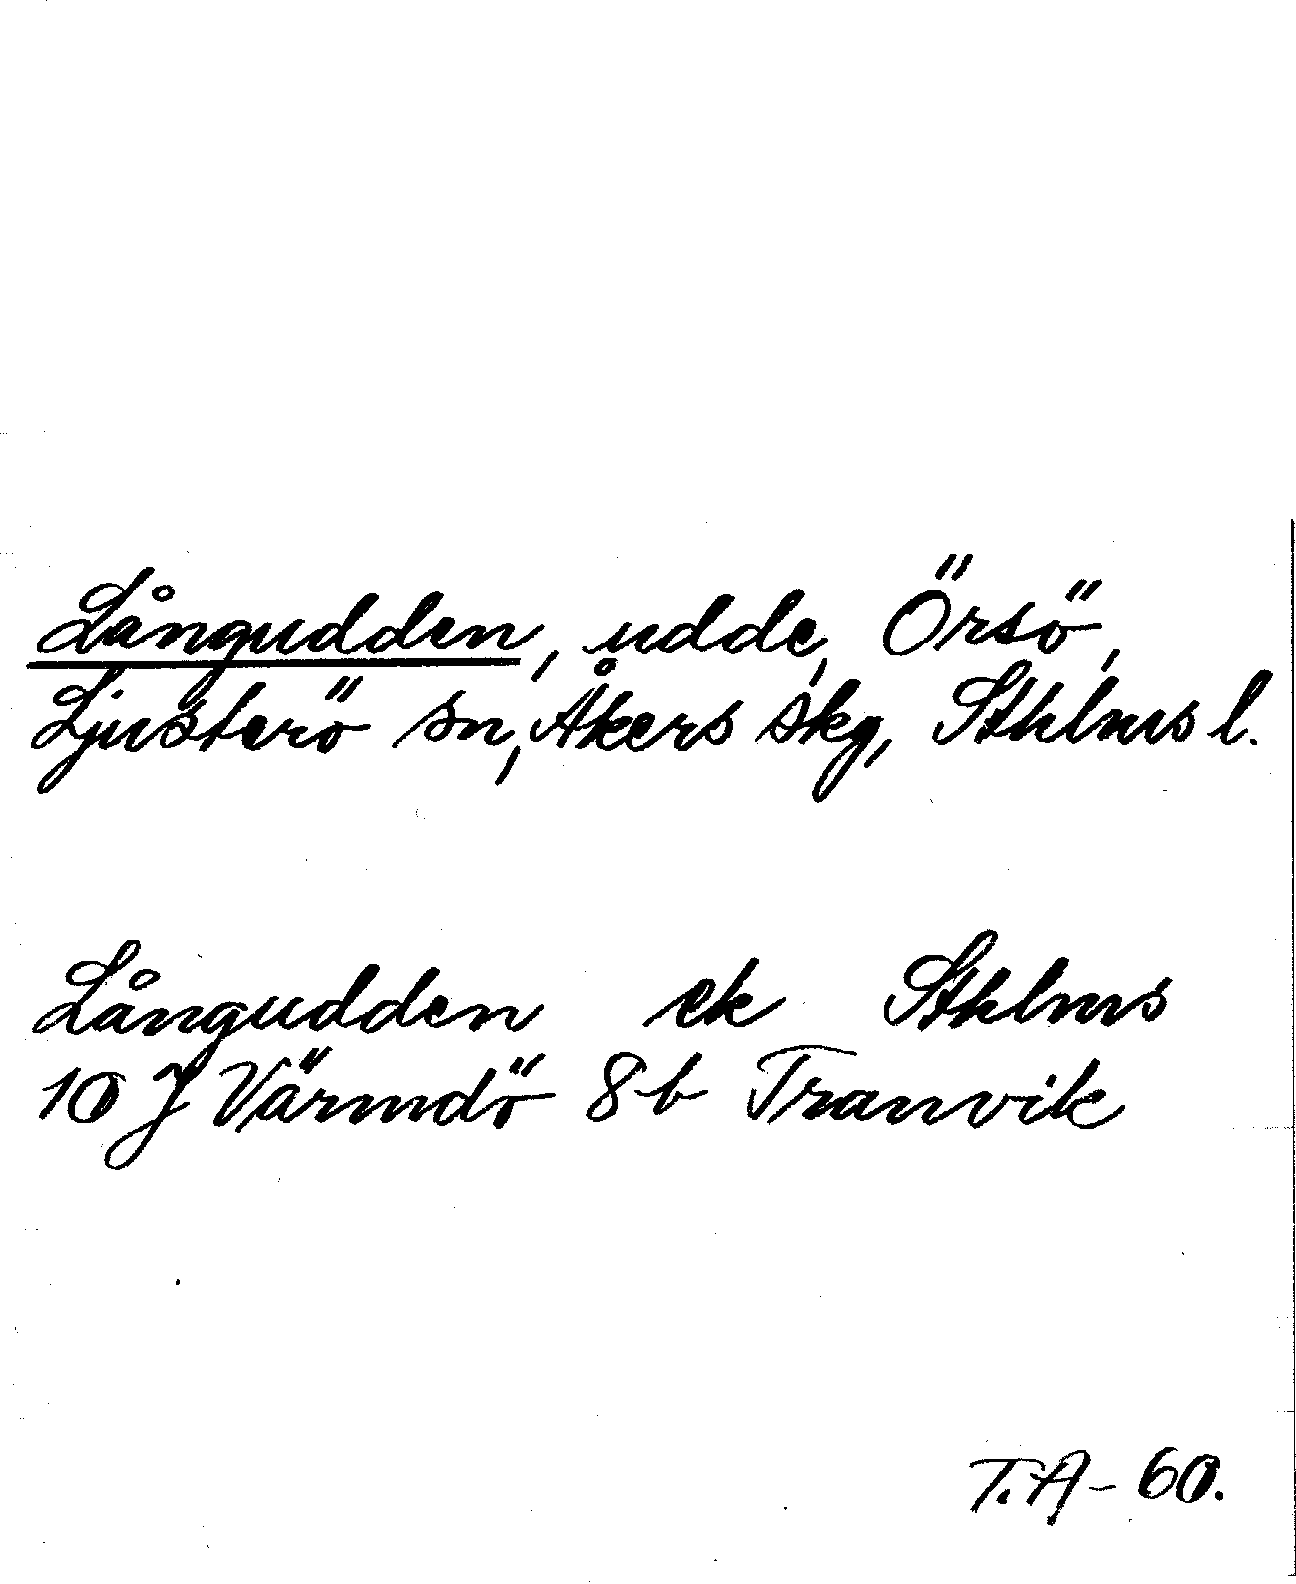 Långudden, udde, Örsö,
Ljusterö sn, Åkers skg, Sthlms l.
Långudden ek Sthlms
10 J Värmdö 8b Tranvik
T.A-60.